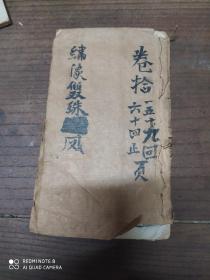 卷拾
五十九回頁
六十四止
繡像雙珠鳳
REDMI NOTE 8
AI QUAD CAMERA